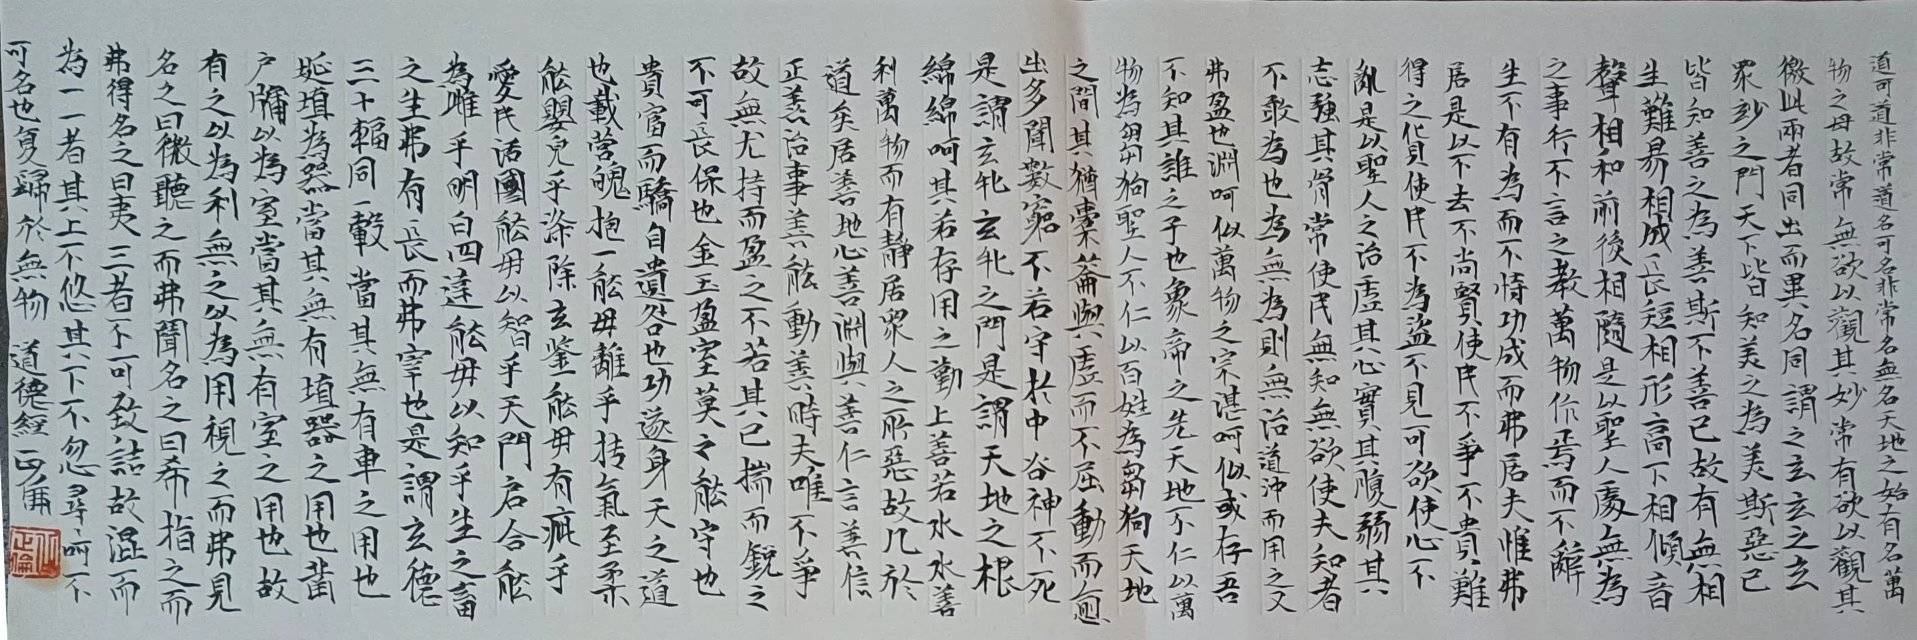 道可道非常道名可名非常名無名天地之始有名萬
物之母故常無欲以觀其妙常有欲以觀其
徼此兩者同出而異名同謂之玄玄之玄
眾妙之門天下皆知美之為美斯惡已
皆知善之為善斯不善已故有無相
生難易相成長短相形高下相傾音
聲相和前後相隨是以聖人處無為
之事行不言之教萬物作焉而不辭
生不有為而不恃功成而弗居夫惟弗
居是以不去不尚賢使民不爭不貴難
得之貨使民不為盜不見可欲使心不
亂是以聖人之治虛其心實其腹弱其
志強其骨常使民無知無欲使夫知者
不敢為也為無為則無治道沖而用之又
弗盈也淵呵似萬物之宗湛呵似或存吾
不知其誰之子也象帝之先天地不仁以萬
物為芻狗聖人不仁以百姓為芻狗天地
之間其猶橐籥與虛而不屈動而愈
出多聞數窮不若守於中谷神不死
是謂玄牝玄牝之門是謂天地之根
綿綿呵其若存用之勤上善若水水善
利萬物而有靜居眾人之所惡故几於
道矣居善地心善淵與善仁言善信
正善治事善能動善時夫唯不爭
故無尤持而盈之不若其已揣而銳之
不可長保也金玉盈室莫之能守也
貴富而驕自遺咎也功遂身天之道
也載營魄抱一能毋離乎摶氣至柔
能嬰兒乎滌除玄鑒能毋有疵乎
愛民活國能毋以智乎天門启合能
為雌乎明白四達能毋以知乎生之畜
之生弗有長而弗宰也是謂玄德
三十輻同一轂當其無有車之用也
埏埴為器當其無有埴器之用也鑿
戶牖以為室當其無有室之用也故
有之以為利無之以為用視之而弗見
名之曰微聽之而弗聞名之曰希指之而
弗得名之曰夷三者不可致詰故混而
為一一者其上不悠其下不忽尋尋呵不
可名也复歸於無物 道德經